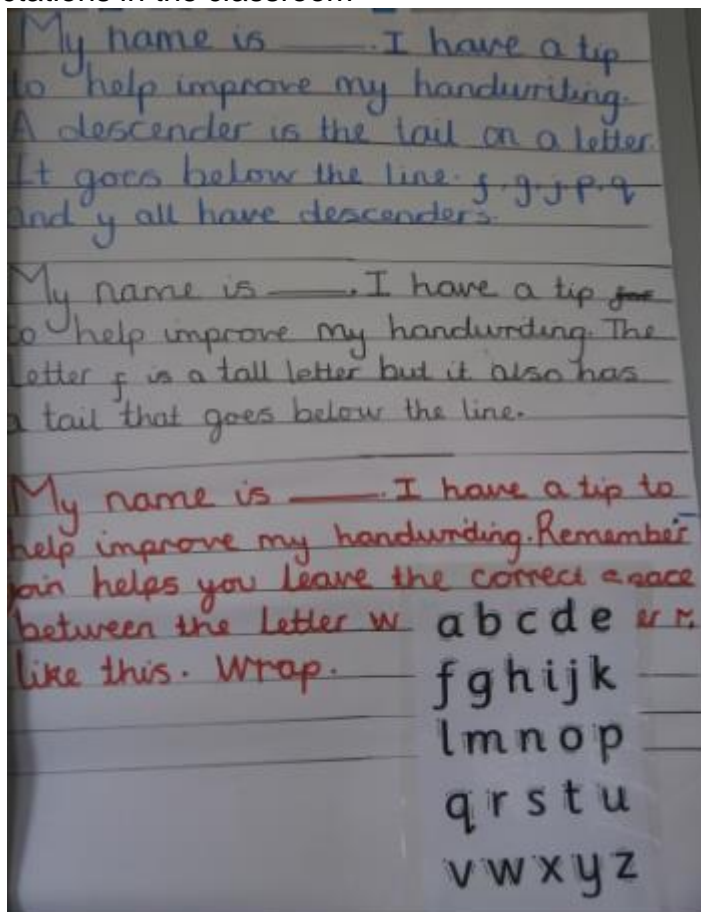 stations in the classroom
My name is ____. I have a tip
to help improve my handwriting.
A descender is the tail on a letter.
It goes below the line. f.g.j.p.q
and y all have descenders.
My name is ____. I have a tip
to help improve my handwriting. The
Letter f is a tall letter but it also has
a tail that goes below the line.
My name is ____. I have a tip to
help improve my handwriting. Remember
join helps you leave the correct space
between the Letter w er r.
like this. Wrap.
a b c d e
f g h i j k
l m n o p
q r s t u
v w x y z